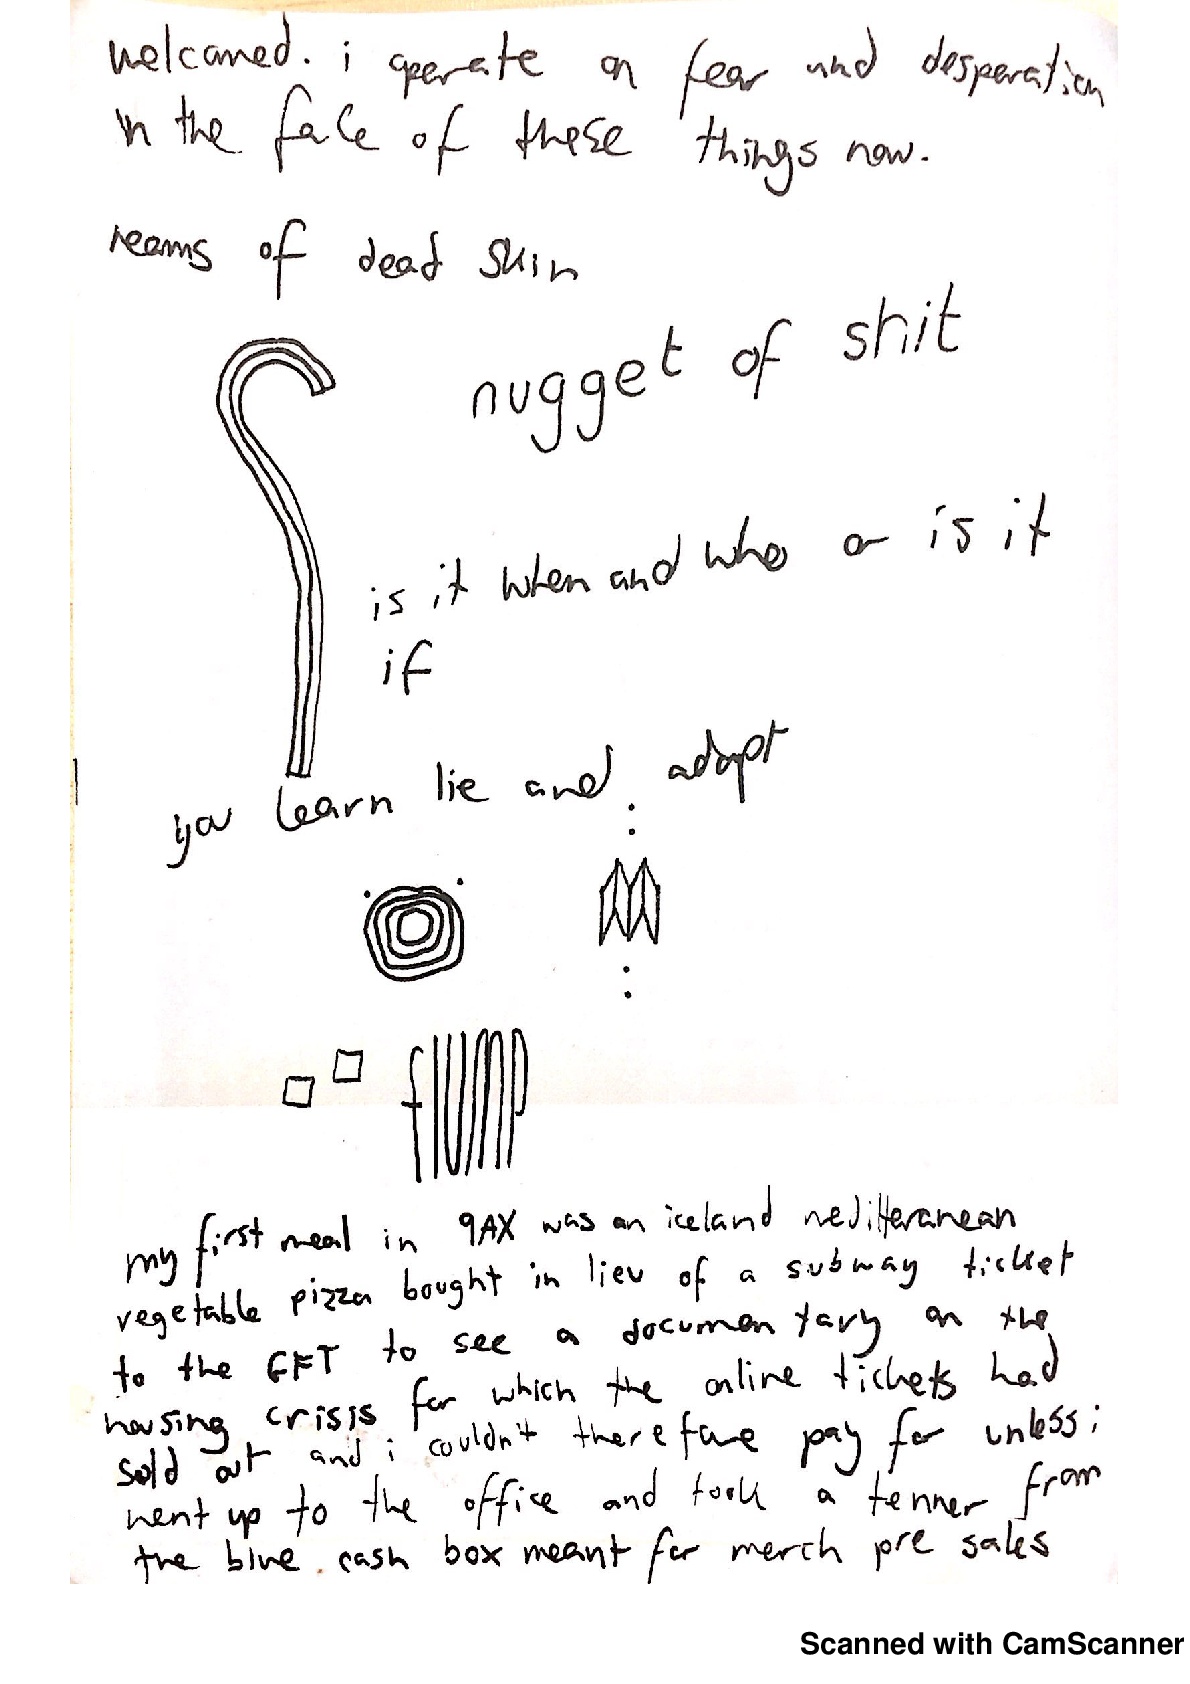 welcomed. i operate on fear and desperation
in the face of these things now.
reams of dead skin
nugget of shit
is it when and who or is it
if
you learn lie and adapt
flump
my first meal in 9AX was an iceland mediterranean
vegetable pizza bought in lieu of a subway ticket
to the GFT to see a documentary on the
housing crisis for which the online tickets had
sold out and i couldn't therefore pay for unless i
went up to the office and took a tenner from
the blue cash box meant for merch pre sales
Scanned with CamScanner